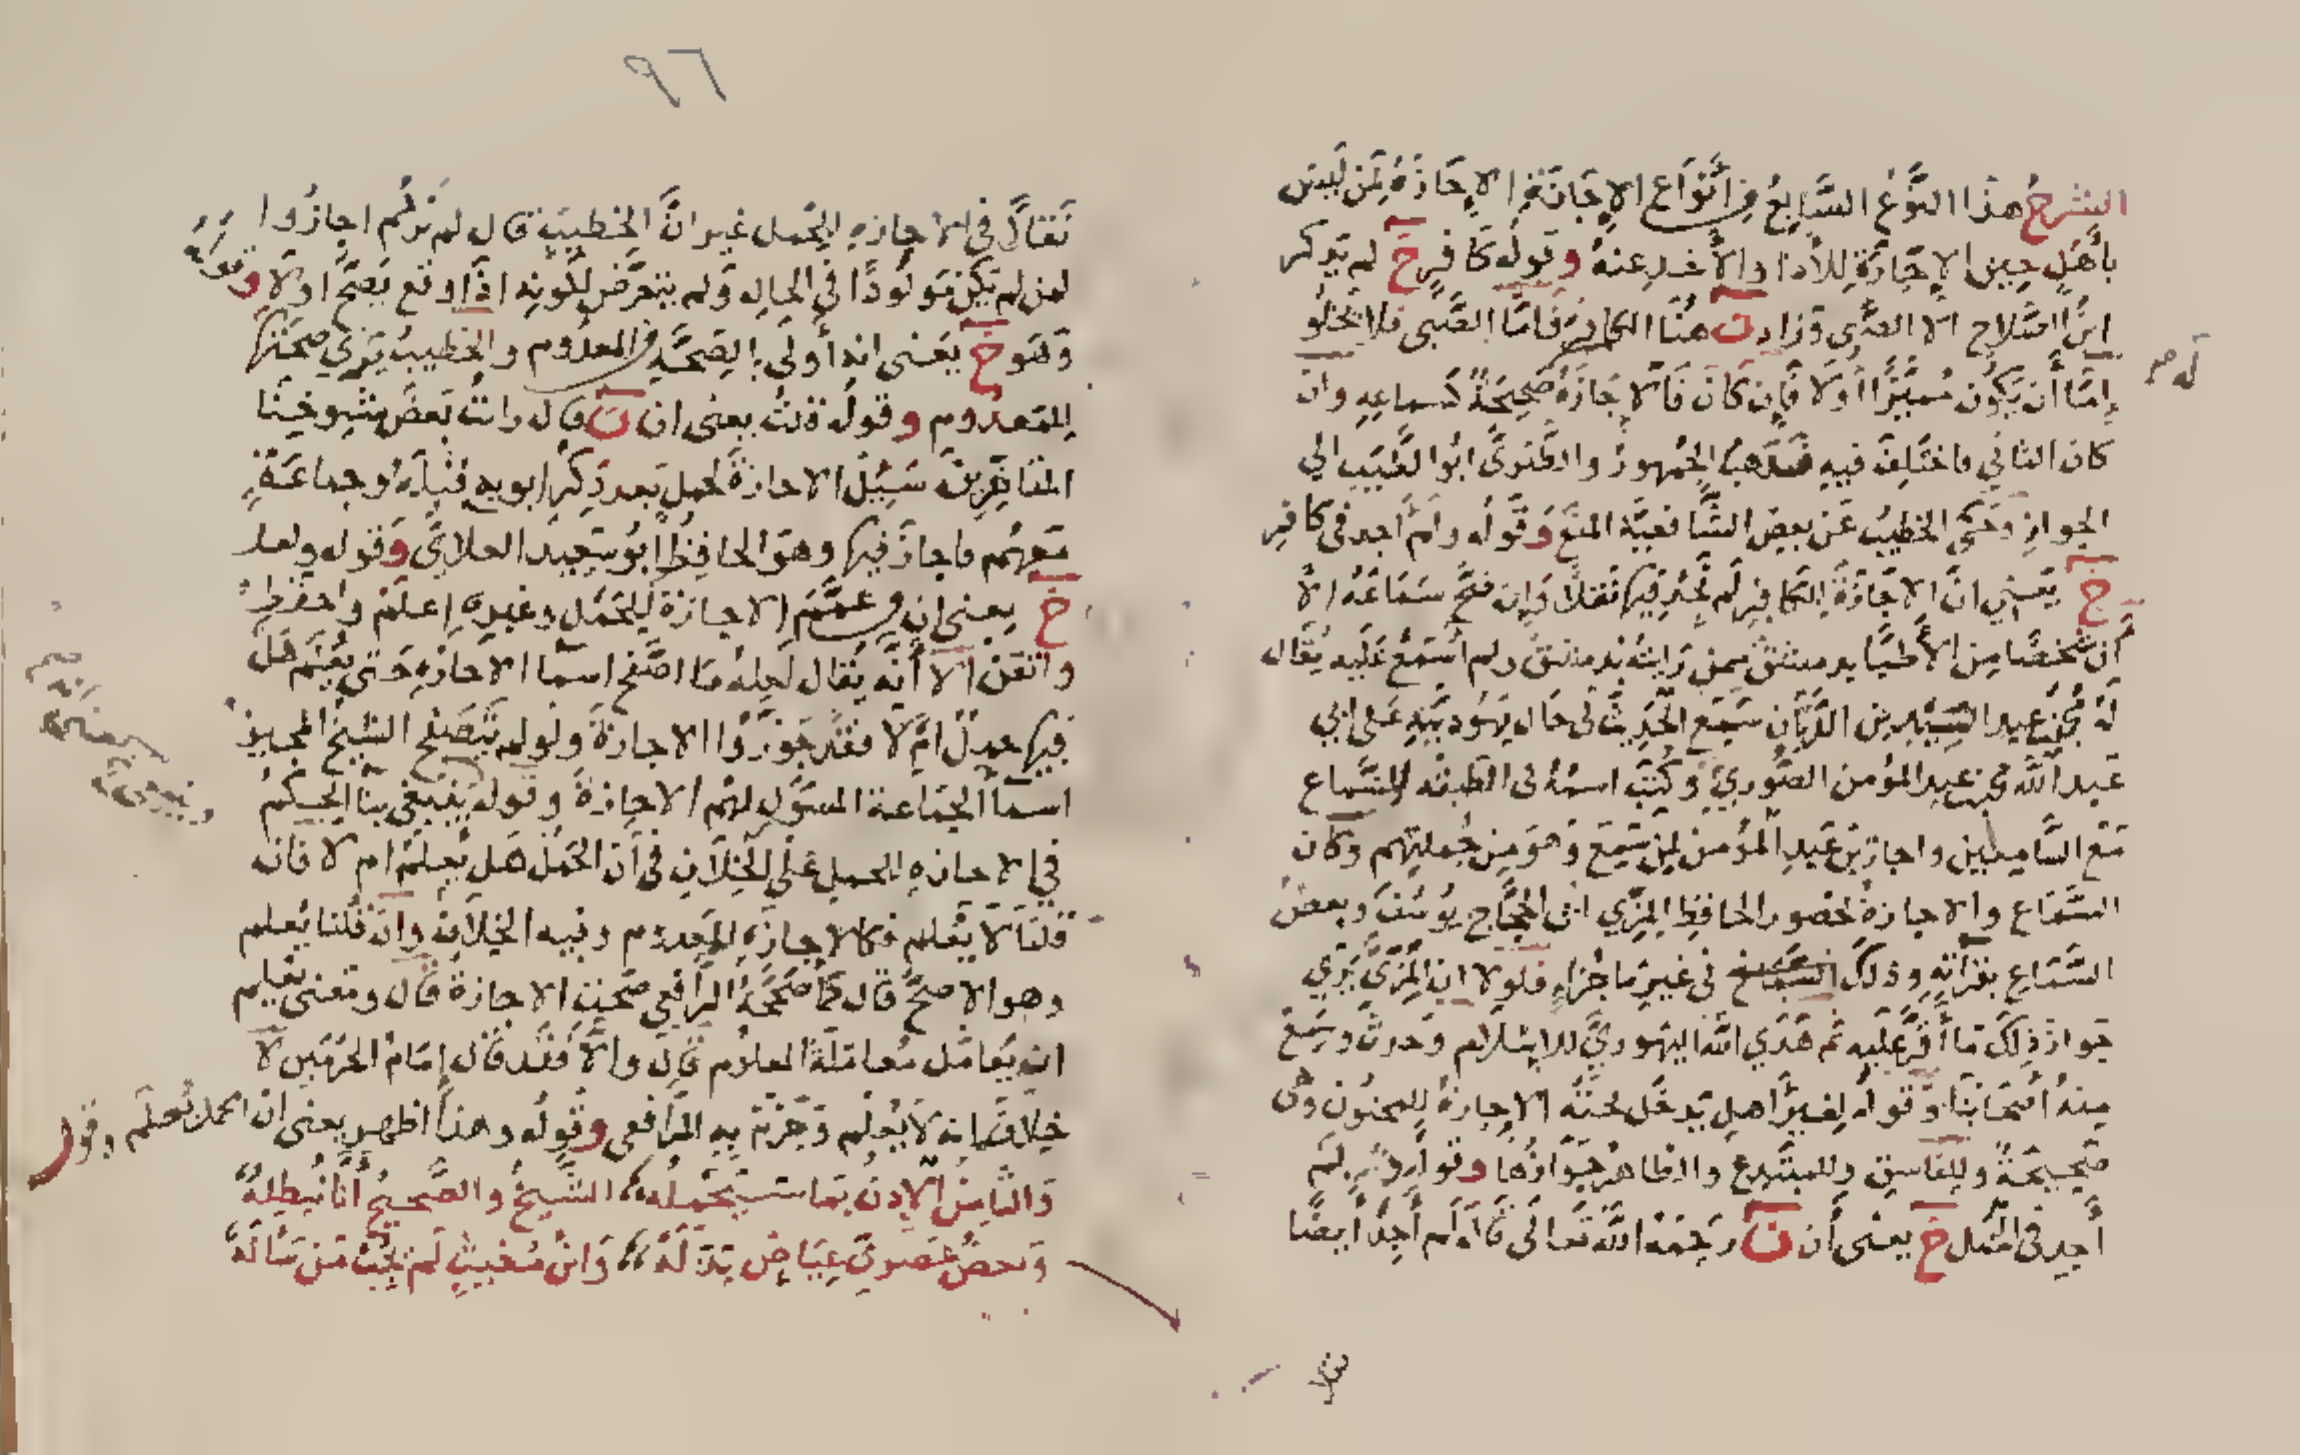 الشرح هذا النوع السابع من أنواع الإجازة الإجازة لمن ليس
بأهل حين الإجازة للأدا والأخذ عنه وقوله كافر خ لم يذكر
ابن الصلاح الا الصبى وزاد ن هنا الكافر فأما الصبى فلا يخلو
إما أن يكون مميزا أولا فإن كان فالاجازة صحيحة كسماعه وان
كان الثاني فاختلف فيه فذهب الجمهور والقنوى ابوا الطيب الي
الجواز وحكى الخطيب عن بعض الشافعية المنع وقوله ولم أجد فى كافر
خ يعني ان الاجازة للكافر لم نجد فيها نقلا وانه فتح سماعه الا
أن شخصا من الأطبا بدمشق ممن رايته بدمشق ولم أسمع عليه يقال
له محمد بن عبد السيد بن الديان سمع الحديث فى حال يهوديته على ابي
عبد الله محمد بن عبد المؤمن الصوري وكتب اسمه فى الطبقه للسماع
مع السامعين واجاز بن عبد المؤمن لمن سمع وهو من جملتهم وكان
السماع والاجازة بحضور الحافظ المزي ابى الحجاج يوسف وبعض
السماع بقرآته وذلك فى غير ما جزاء فلولا ان المزى يري
جواز ذلك ما أقر عليه ثم هدي الله اليهودي للاسلام وحدث وسمع
منه أصحابنا وقوله لغير أهل يدخل تحته الاجازة للمجنون وهى
صحيحة وللفاسق وللمبتدع والظاهر جوازها وقوله ولم
أجد فى الحمل خ يعنى أن ن رحمه الله تعالى قال لم أجد أيضا
٩٦
نقلا في الاجازه للحمل غير ان الخطيب قال لم نرهم اجازوا
لمن لم يكن مولودا في الحال ولم يتعرض لكونه اذا وقع يصح اولا وقوله
وهو خ يعنى انه أولى بالصحة فى المعدوم والخطيب يرى صحتها
للمعدوم وقوله قلت يعنى ان ن قال رايت بعض شيوخنا
المتاخرين سئل الاجازة لحمل بعد ذكر ابويه قبله وجماعة
معهم فاجاز فيها وهو الحافظ ابو سعيد العلاي وقوله ولعل
خ يعنى ان من عمم الاجازة للحمل وغيره إعلم واحفظ
واتقن الا أنه يقال لعله ما اصفح اسما الاجازه حتى يعلم هل
فيها حمل ام لا فقد جوزوا الاجازة ولو لم يتصفح الشيخ المجيز
اسما الجماعة المسؤل لهم الاجازة وقوله ينبغى بنا الحكم
في الاجازه للحمل على الخلاف فى ان الحمل هل يعلم ام لا فانه
قلنا لا يعلم فكالاجازه للمعدوم وفيه الخلاف وان قلنا يعلم
وهو الاصح قال كما صححه الرافعي صحت الاجازة قال ومعنى يعلم
ان يعامل معاملة المعلوم قال والا فقد قال إمام الحرمين لا
خلاف انه لا يعلم وجزم به الرافعي وقوله وهذا اظهر يعنى ان الحمل يعلم وقول
والثامن الإذن بما سيحمله الشيخ والصحيح أنا نبطله
وبعض عصري عياض بذله وابن مغيث لم يجب من سأله